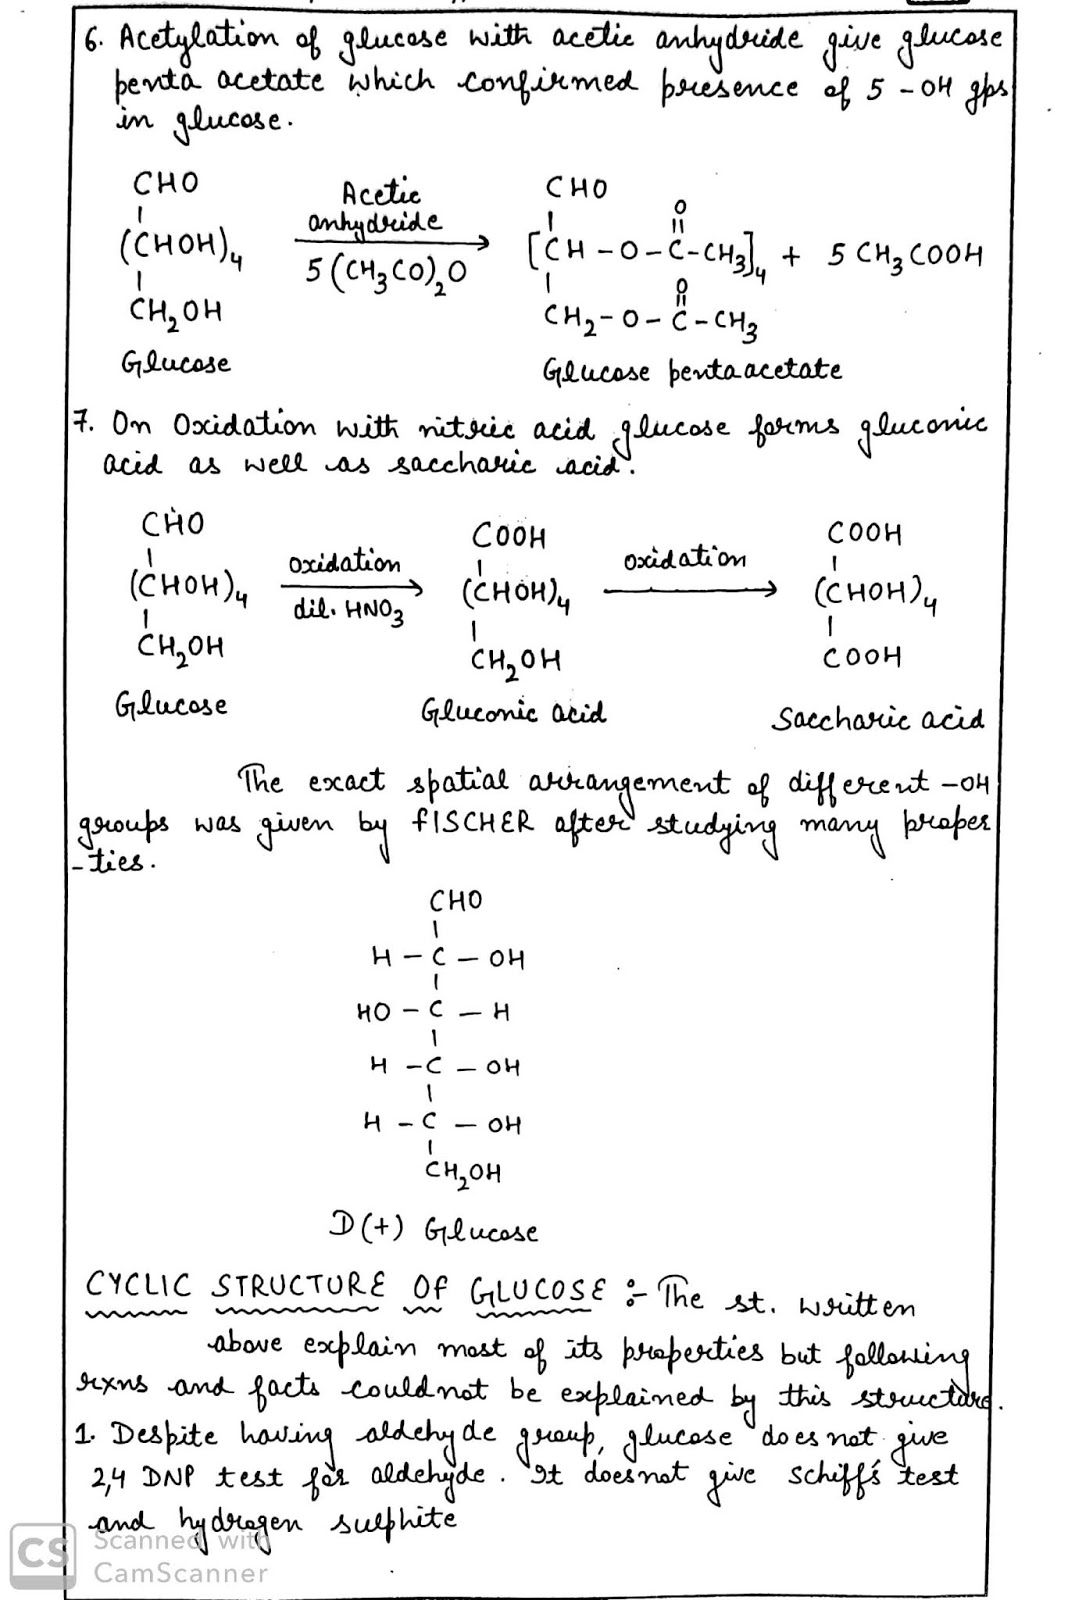 6. Acetylation of glucose with acetic anhydride give glucose
penta acetate which confirmed presence of 5 -OH gps
in glucose.
CHO
(CHOH)4
CH2OH
Glucose
Acetic
anhydride
5(CH3CO)2O
CHO
O
[CH-O-C-CH3]4 + 5 CH3COOH
O
CH2-O-C-CH3
Glucose pentaacetate
7. On Oxidation with nitric acid glucose forms gluconic
acid as well as saccharic acid.
CHO
(CHOH)4
CH2OH
Glucose
oxidation
dil. HNO3
COOH
(CHOH)4
CH2OH
Gluconic acid
oxidation
COOH
(CHOH)4
COOH
Saccharic acid
The exact spatial arrangement of different -OH
groups was given by fISCHER after studying many proper
-ties.
CHO
H - C - OH
HO - C - H
H - C - OH
H - C - OH
CH2OH
D(+) Glucose
CYCLIC STRUCTURE OF GLUCOSE :- The st. written
above explain most of its properties but following
rxns and facts couldnot be explained by this structure.
1. Despite having aldehyde group, glucose does not give
2,4 DNP test for aldehyde. It doesnot give schiff's test
and hydrogen sulphite
CS
Scanned with
CamScanner